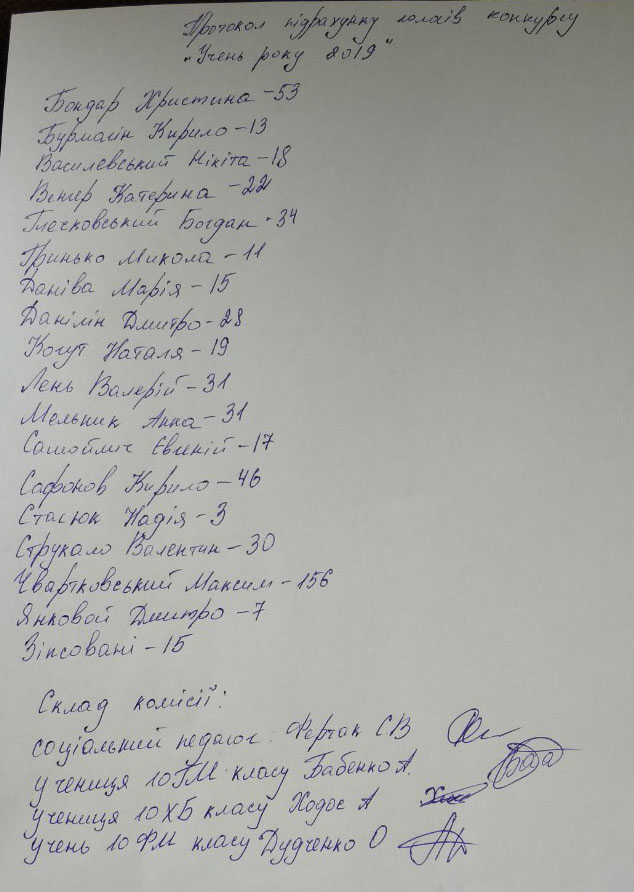 Протокол підрахунку голосів конкурсу
"Учень року 2019"
Бондар Христина - 53
Бурмагін Кирило - 13
Василевський Нікіта - 18
Венгер Катерина - 22
Глечковський Богдан - 34
Гринько Микола - 11
Даніва Марія - 15
Данілін Дмитро - 28
Когут Наталя - 19
Лень Валерій - 31
Мельник Анна - 31
Самойліч Євгеній - 17
Сафонов Кирило - 46
Стасюк Надія - 3
Струкало Валентин - 30
Чвартковський Максим - 156
Янковой Дмитро - 7
Зіпсовані - 15
Склад комісії:
соціальний педагог: Фертак СВ
учениця 10ГМ класу Бабенко А.
учениця 10ХБ класу Ходос А
учень 10ФМ класу Дудченко О